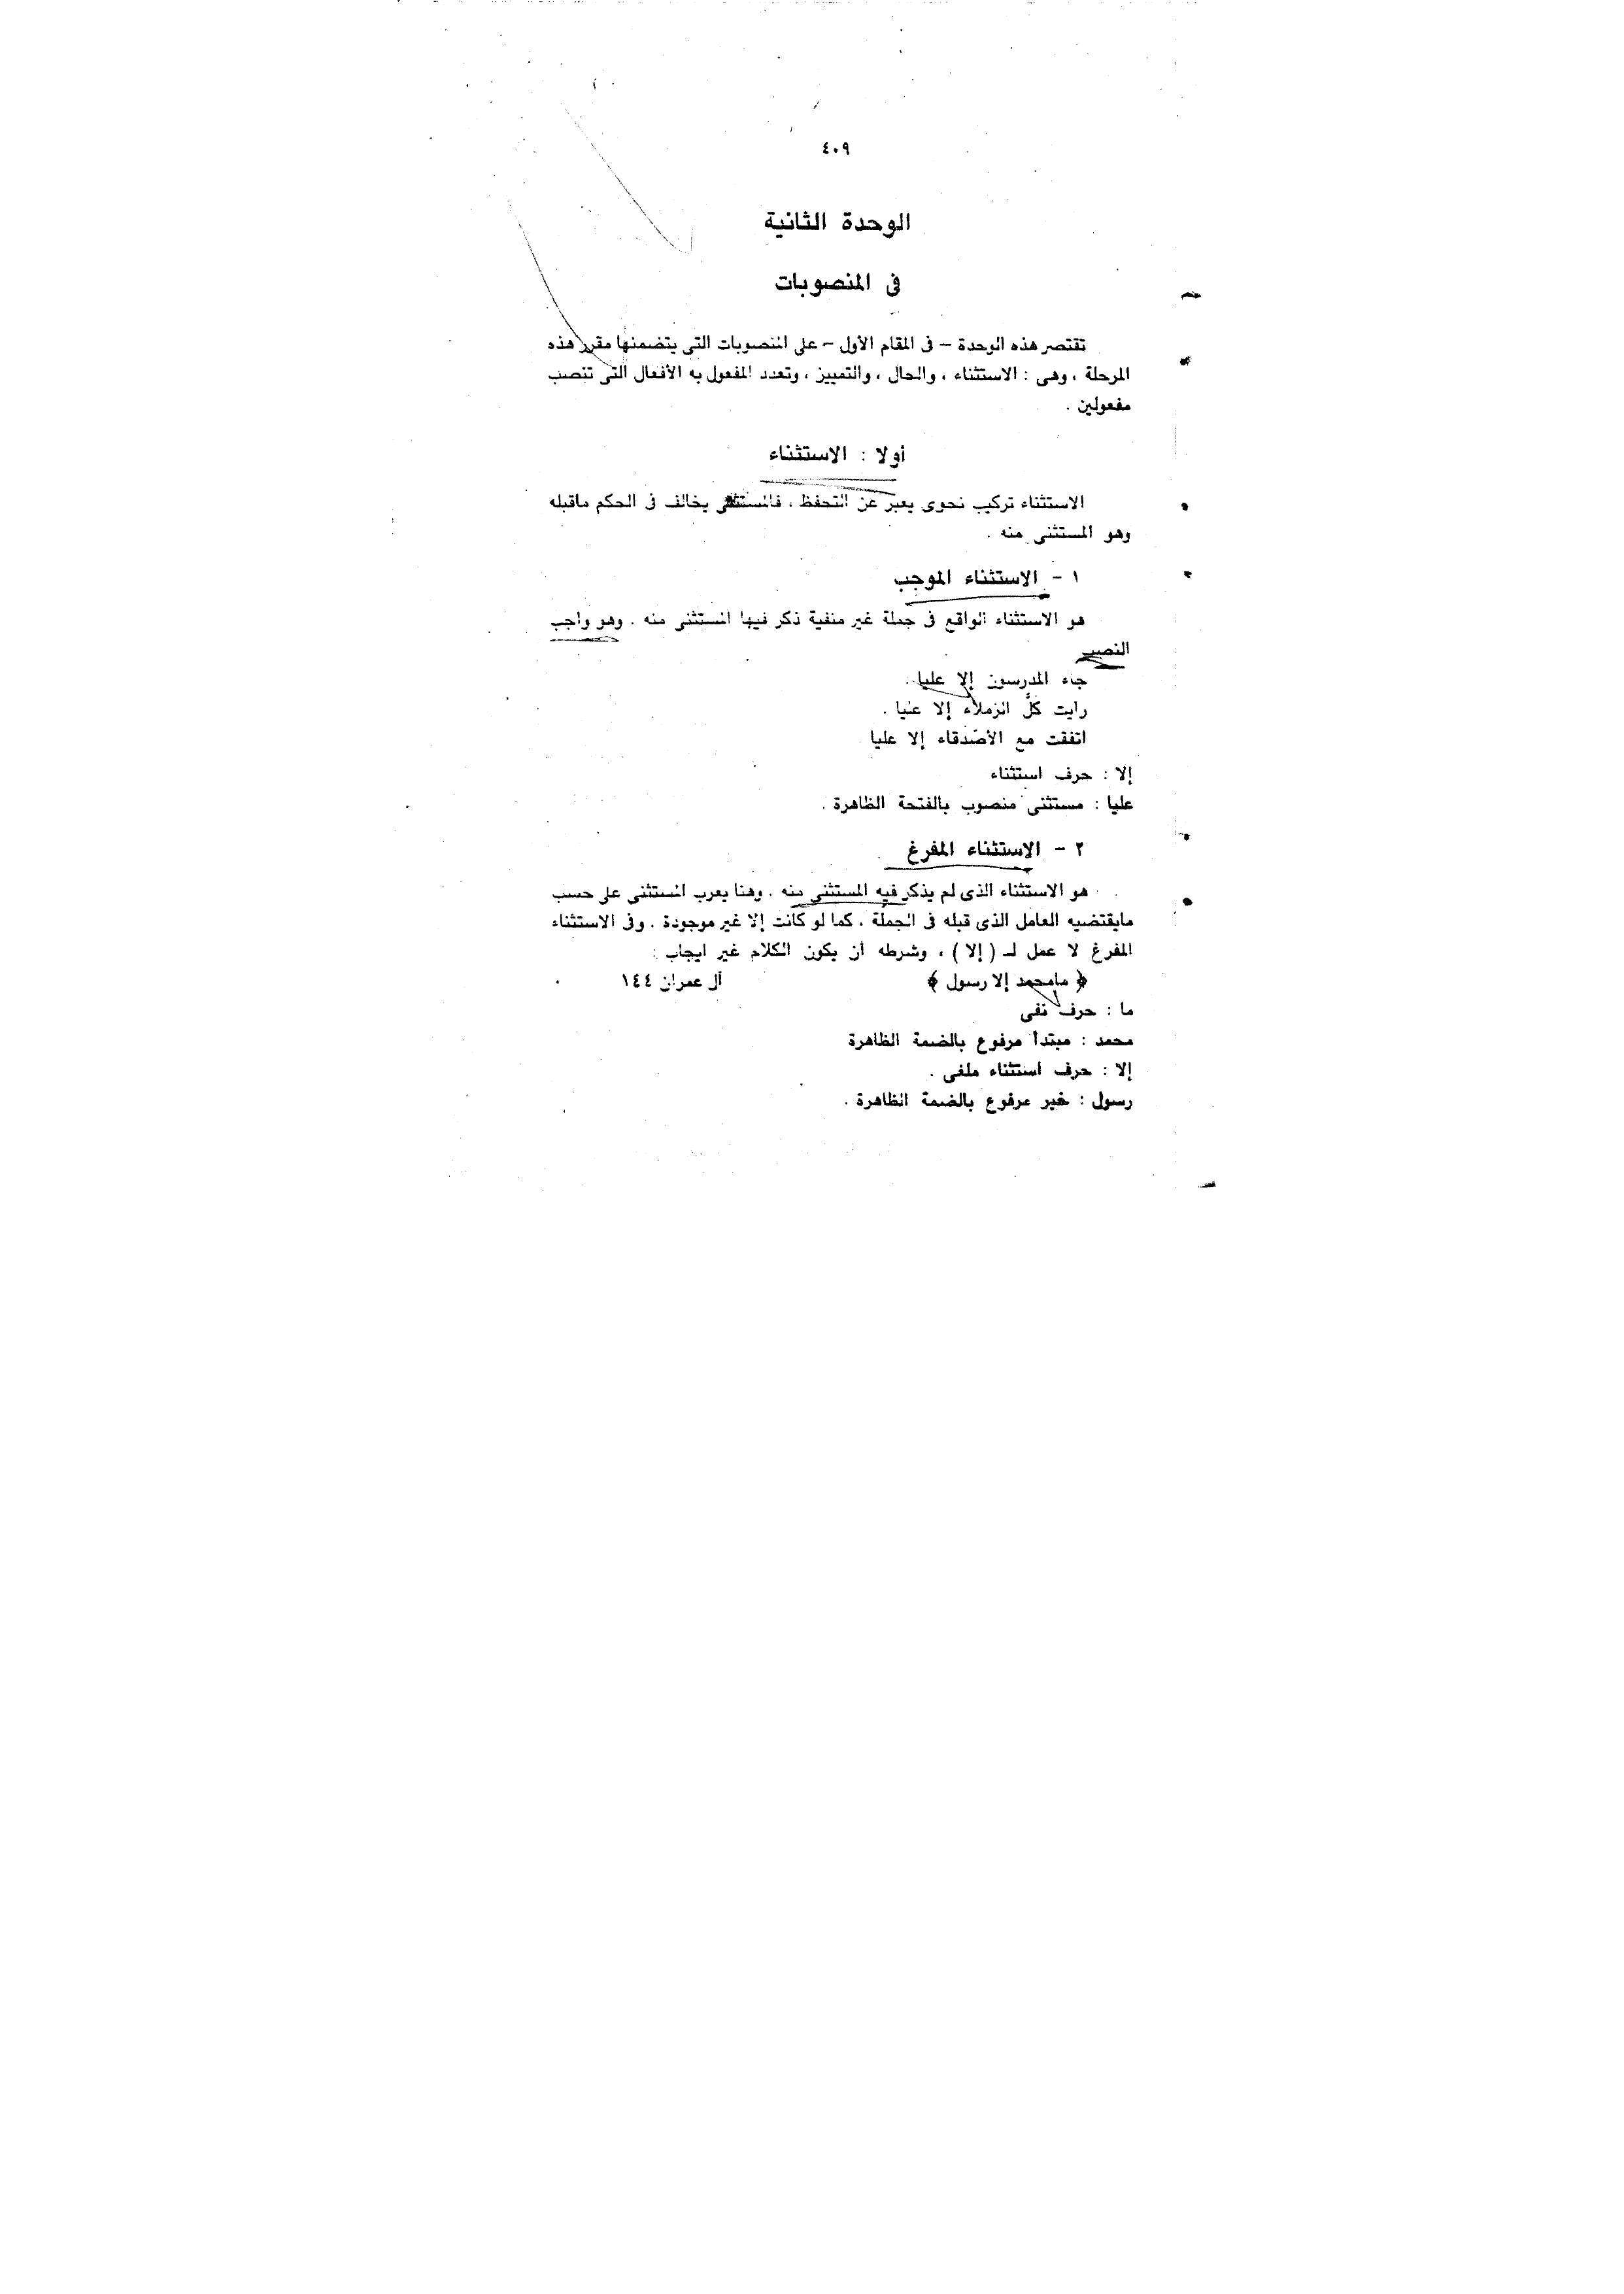 ٤٠٩
الوحدة الثانية
فى المنصوبات
تقتصر هذه الوحدة – فى المقام الأول – على المنصوبات التى يتضمنها مقرر هذه
المرحلة ، وهى : الاستثناء ، والحال ، والتمييز ، وتعدد المفعول به الأفعال التى تنصب
مفعولين .
أولا : الاستثناء
الاستثناء تركيب نحوى يعبر عن التحفظ ، فالمستثنى يخالف فى الحكم ماقبله
وهو المستثنى منه .
١ – الاستثناء الموجب
هو الاستثناء الواقع فى جملة غير منفية ذكر فيها المستثنى منه . وهو واجب
النصب
جاء المدرسون إلا عليا .
رايت كلَّ الزملاء إلا عليا .
اتفقت مع الأصدقاء إلا عليا
إلا : حرف استثناء
عليا : مستثنى منصوب بالفتحة الظاهرة .
٢ – الاستثناء المفرغ
هو الاستثناء الذى لم يذكر فيه المستثنى منه . وهنا يعرب المستثنى على حسب
مايقتضيه العامل الذى قبله فى الجملة ، كما لو كانت إلا غير موجودة . وفى الاستثناء
المفرغ لا عمل لـ ( إلا ) ، وشرطه أن يكون الكلام غير ايجاب :
﴿ مامحمد إلا رسول ﴾ آل عمران ١٤٤
ما : حرف نفى
محمد : مبتدأ مرفوع بالضمة الظاهرة
إلا : حرف استثناء ملغى .
رسول : خبر مرفوع بالضمة الظاهرة .